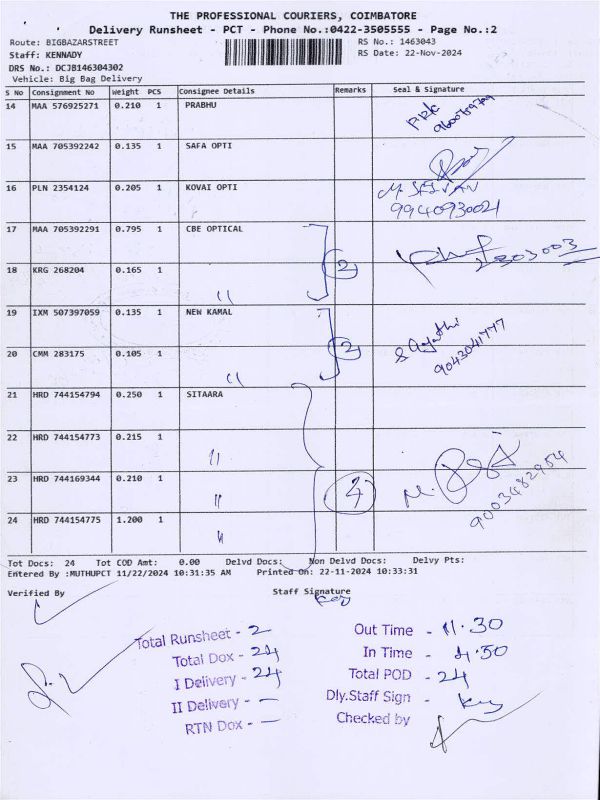 THE PROFESSIONAL COURIERS, COIMBATORE
Delivery Runsheet - PCT - Phone No.:0422-3505555 - Page No.:2
Route: BIGBAZARSTREET RS No.: 1463043
Staff: KENNADY RS Date: 22-Nov-2024
DRS No.: DCJB146304302
Vehicle: Big Bag Delivery
S No Consignment No Weight PCS Consignee Details Remarks Seal & Signature
14 MAA 576925271 0.210 1 PRABHU
15 MAA 705392242 0.135 1 SAFA OPTI
16 PLN 2354124 0.205 1 KOVAI OPTI M. SELVAN
9940930021
17 MAA 705392291 0.795 1 CBE OPTICAL 2
18 KRG 268204 0.165 1 "
19 IXM 507397059 0.135 1 NEW KAMAL 2
9043041777
20 CMM 283175 0.105 1 "
21 HRD 744154794 0.250 1 SITAARA
22 HRD 744154773 0.215 1 "
23 HRD 744169344 0.210 1 " 4
9003482954
24 HRD 744154775 1.200 1 "
Tot Docs: 24 Tot COD Amt: 0.00 Delvd Docs: Non Delvd Docs: Delvy Pts:
Entered By :MUTHUPCT 11/22/2024 10:31:35 AM Printed On: 22-11-2024 10:33:31
Verified By Staff Signature
Total Runsheet - 2
Total Dox - 24
I Delivery - 24
II Delivery - —
RTN Dox - —
Out Time - 11.30
In Time - 4.50
Total POD - 24
Dly.Staff Sign -
Checked by